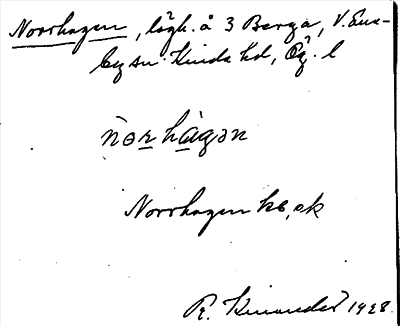 Norrhagen, lägh. å 3 Berga, V. Ene-
by sn. Kinda hd, Ög. l
norhagən
Norrhagen ks, ek
R. Kinander 1928.